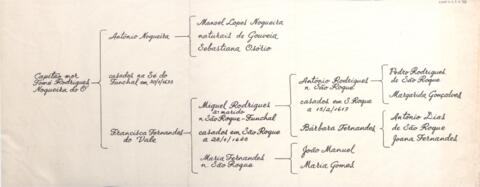 Capitão mor
Tomé Rodrigues
Nogueira do Ó
António Nogueira
casados na Sé do
Francisca Fernandes
do Vale
Manoel Lopes Nogueira
naturais de Gouveia
Sebastiana Osório
Miguel Rodrigues
n. São Roque-Funchal
casados em São Roque
Maria Fernandes
n. São Roque
António Rodrigues
n. São Roque
casados em S. Roque
Bárbara Fernandes
João Manuel
Maria Gomes
Pedro Rodrigues
de São Roque
Margarida Gonçalves
António Dias
de São Roque
Joana Fernandes